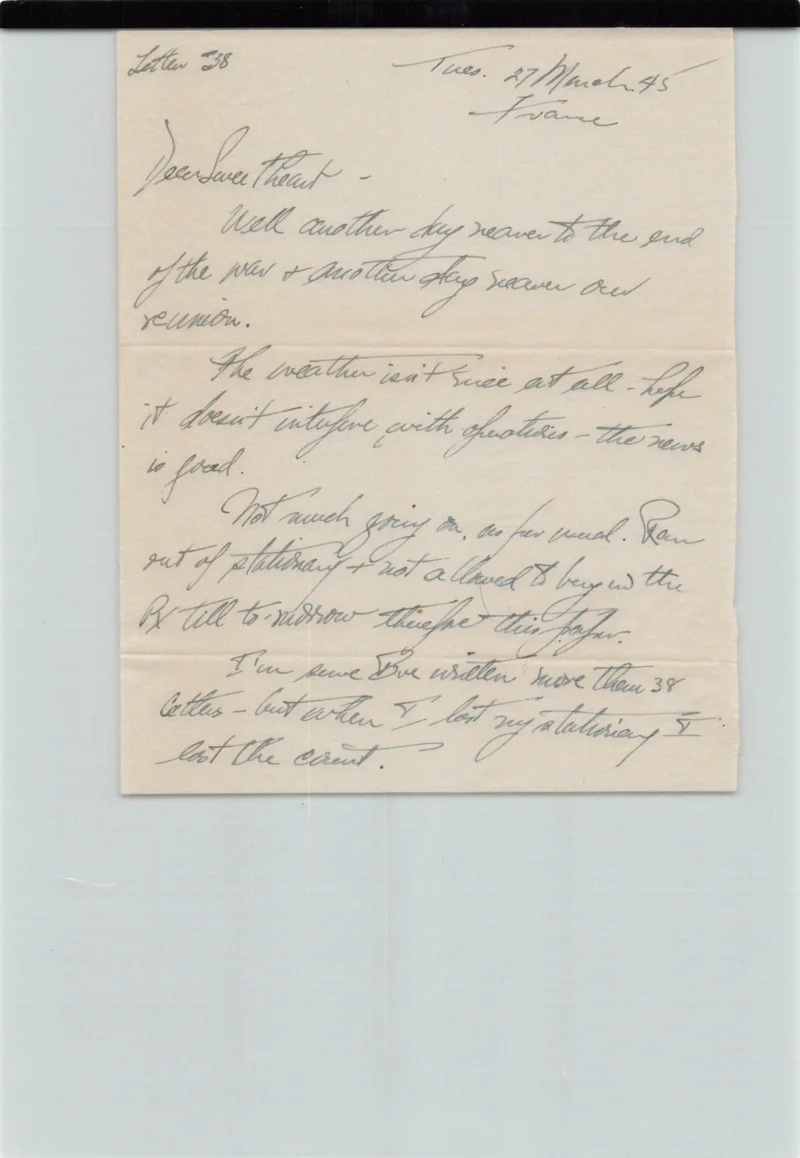 Letter #38
Tues. 27 March 45
France
Dear Sweetheart -
Well another day nearer to the end
of the war + another day nearer our
reunion.
The weather isn't nice at all - hope
it doesn't interfere with operations - the news
is good.
Not much going on, as per usual. Ran
out of stationary + not allowed to buy in the
Px till to-morrow therefore this paper.
I'm sure I've written more than 38
letters - but when I lost my stationary I
lost the count.